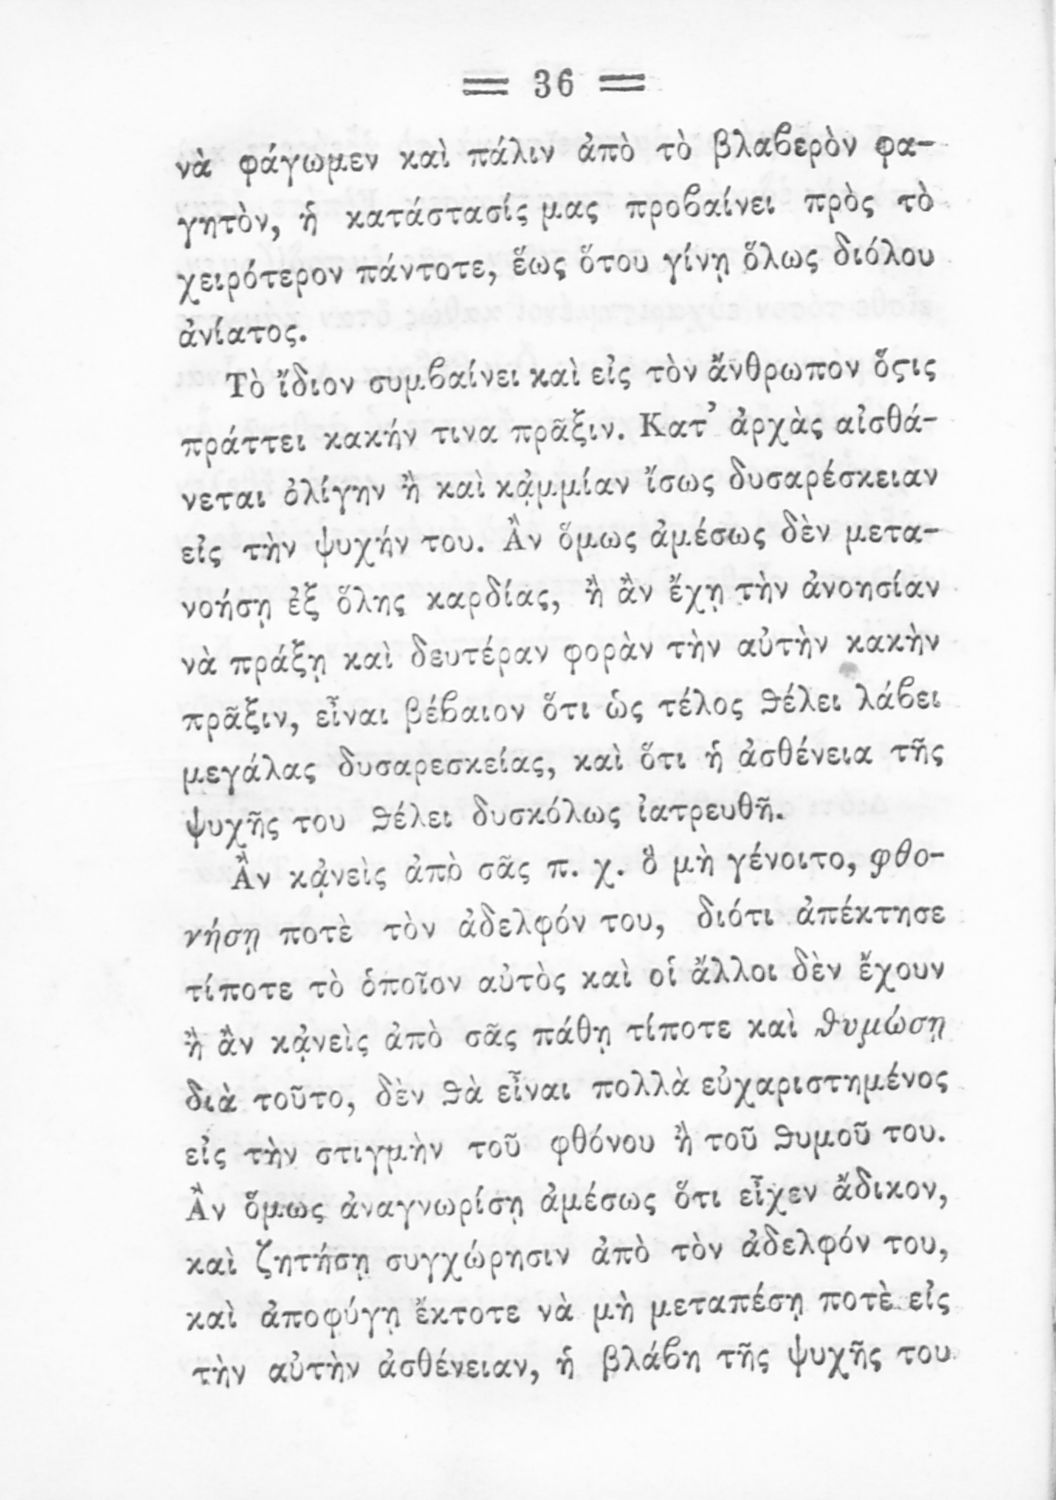 = 36 =
νὰ φάγωμεν καὶ πάλιν ἀπὸ τὸ βλαϐερὸν φα-
γητὸν, ἡ κατάστασίς μας προϐαίνει πρὸς τὸ
χειρότερον πάντοτε, ἕως ὅτου γίνῃ ὅλως διόλου
ἀνίατος.
Τὸ ἴδιον συμϐαίνει καὶ εἰς τὸν ἄνθρωπον ὅςις
πράττει κακήν τινα πρᾶξιν. Κατ’ ἀρχὰς αἰσθά-
νεται ὀλίγην ἢ καὶ κᾀμμίαν ἴσως δυσαρέσκειαν
εἰς τὴν ψυχήν του. Ἂν ὅμως ἀμέσως δὲν μετα-
νοήσῃ ἐξ ὅλης καρδίας, ἢ ἂν ἔχῃ τὴν ἀνοησίαν
νὰ πράξῃ καὶ δευτέραν φορὰν τὴν αὐτὴν κακὴν
πρᾶξιν, εἶναι βέϐαιον ὅτι ὡς τέλος ϑέλει λάϐει
μεγάλας δυσαρεσκείας, καὶ ὅτι ἡ ἀσθένεια τῆς
ψυχῆς του ϑέλει δυσκόλως ἰατρευθῆ.
Ἂν κᾀνεὶς ἀπὸ σᾶς π. χ. ὃ μὴ γένοιτο, φθο-
νήσῃ ποτὲ τὸν ἀδελφόν του, διότι ἀπέκτησε
τίποτε τὸ ὁποῖον αὐτὸς καὶ οἱ ἄλλοι δὲν ἔχουν
ἢ ἂν κᾀνεὶς ἀπὸ σᾶς πάθῃ τίποτε καὶ ϑυμώσῃ
διὰ τοῦτο, δὲν ϑὰ εἶναι πολλὰ εὐχαριστημένος
εἰς τὴν στιγμὴν τοῦ φθόνου ἢ τοῦ ϑυμοῦ του.
Ἂν ὅμως ἀναγνωρίσῃ ἀμέσως ὅτι εἶχεν ἄδικον,
καὶ ζητήσῃ συγχώρησιν ἀπὸ τὸν ἀδελφόν του,
καὶ ἀποφύγῃ ἔκτοτε νὰ μὴ μεταπέσῃ ποτὲ εἰς
τὴν αὐτὴν ἀσθένειαν, ἡ βλάϐη τῆς ψυχῆς του